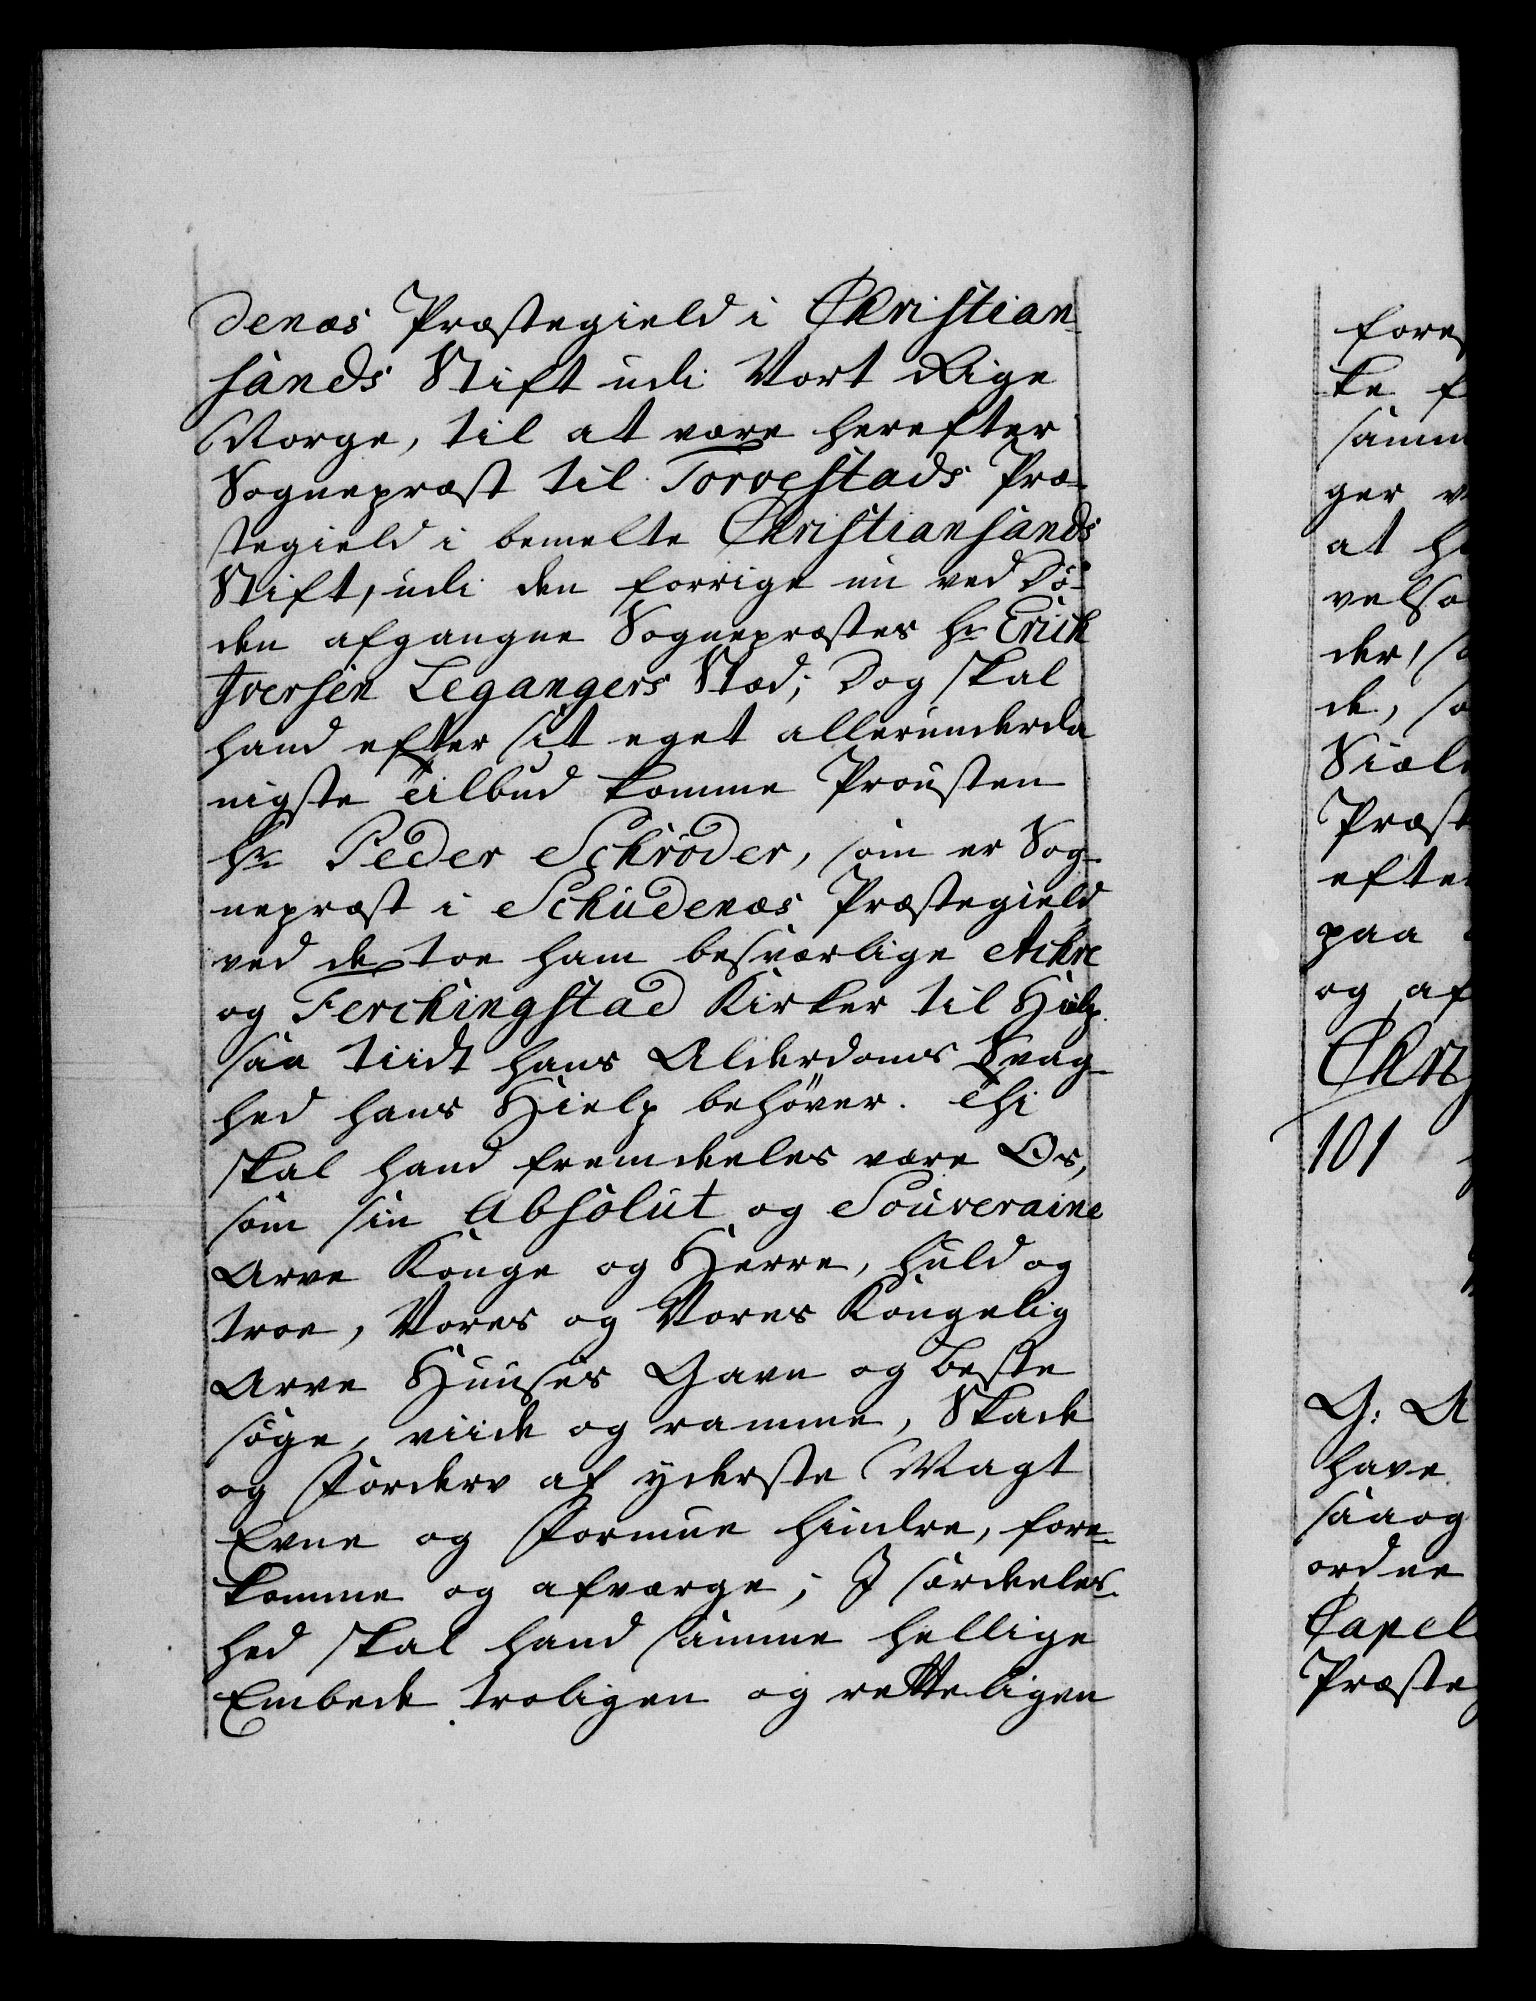 denæs Præstegield i Christian-
sands Stift udi Vort Rige
Norge, til at være herefter
Sognepræst til Torvestads Præ-
stegield i bemelte Christiansands
Stift, udi den forrige nu ved Dö-
den afgangne Sognepræstes Hr Erich
Iversen Legangers Stæd; Dog skal
hand efter sit eget allerunderda
nigste Tilbud komme Prousten
Hr Peder Schrøder, som er Sog-
nepræst i Schudenæs Præstegield
ved de toe ham besværlige Achre
og Ferchingstad Kirker til Hielp
saa tiidt hans Alderdoms Svag-
hed hans Hielp behöver. Thi
skal hand fremdeeles være Os,
som sin Absolut og Souveraine
Arve Konge og Herre, huld og
troe, Vores og Vores Kongelig
Arve Huuses Gavn og beste
söge, viide og ramme, Skade
og Forderv af yderste Magt
Evne og Formue hindre, fore-
komme og afværge; I særdeeles-
hed skal hand samme hellige
Embede troligen og retteligen
fore
ke f
samm
ger v
at h
velse
der, s
de, so
Siæle
Præst
efter
paa
og af
Chri
101
G: A
have
saa og
ordne
Capel
Præste